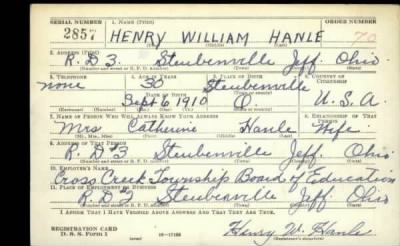 SERIAL NUMBER 1. NAME (Print) ORDER NUMBER
2857 HENRY WILLIAM HANLE 70
(First) (Middle) (Last)
2. ADDRESS (Print)
R.D 3. Steubenville Jeff. Ohio
3. TELEPHONE 4. AGE IN YEARS 5. PLACE OF BIRTH 6. COUNTRY OF CITIZENSHIP
none 30 Steubenville
DATE OF BIRTH
Sept 6 1910 O. U.S.A.
(Exchange) (Number) (Mo.) (Day) (Yr.) (State or country)
7. NAME OF PERSON WHO WILL ALWAYS KNOW YOUR ADDRESS 8. RELATIONSHIP OF THAT PERSON
Mrs Catherine Hanle Wife
(Mr., Mrs., Miss) (First) (Middle) (Last)
9. ADDRESS OF THAT PERSON
R D 3 Steubenville Jeff. Ohio
(Number and street or R. F. D. number) (Town) (County) (State)
10. EMPLOYER'S NAME
Cross Creek Township Board of Education
11. PLACE OF EMPLOYMENT OR BUSINESS
R D 2 Steubenville Jeff Ohio
(Number and street or R. F. D. number) (Town) (County) (State)
I AFFIRM THAT I HAVE VERIFIED ABOVE ANSWERS AND THAT THEY ARE TRUE.
REGISTRATION CARD
D. S. S. Form 1 16—17105 Henry W. Hanle
(Registrant's signature)